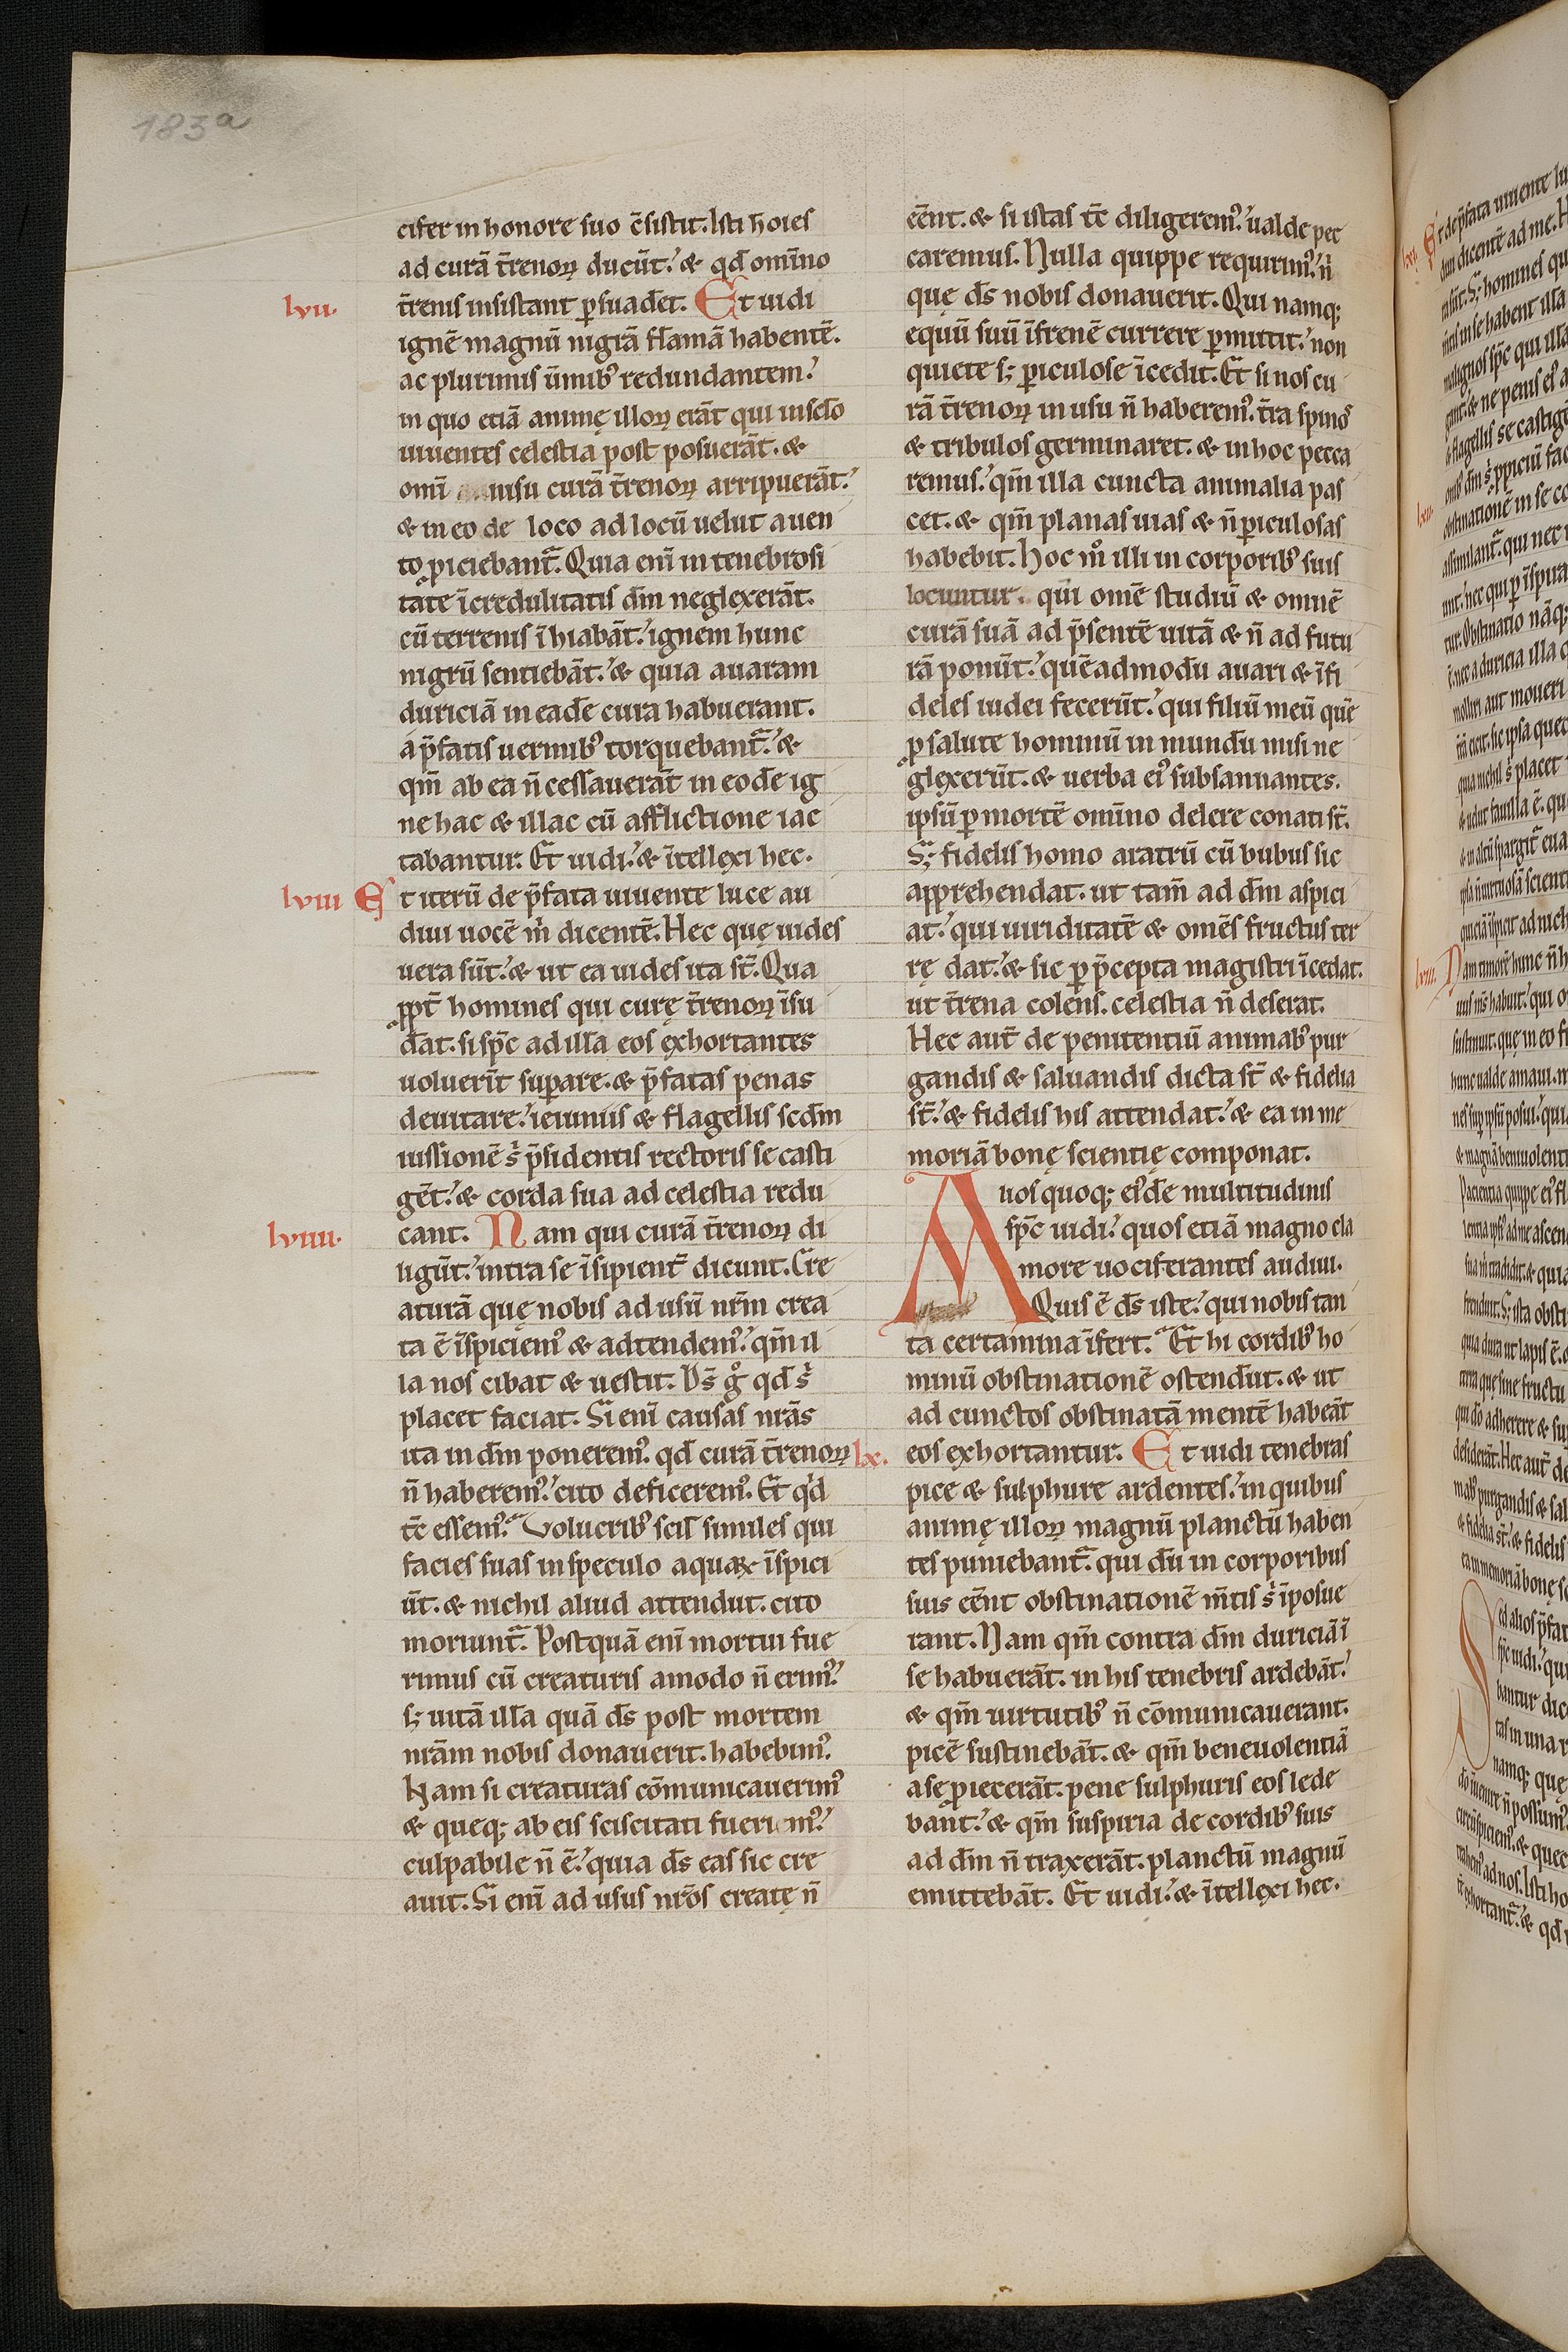 183a
cifer in honore suo c̄sistit. Isti hoīes
ad curā t̄renoꝝ ducūt.' & qd̄ omīno
lvii. t̄renis insistant ꝑsuadēt. Et uidi
ignē magnū nigrā flamā habentē.
ac plurimis ūmibꝰ redundantem.'
in quo etiā animę illoꝝ erāt qui in scl̄o
uiuentes celestia post posuerāt. &
omī nisu curā t̄renoꝝ arripuerāt.'
& in eo de loco ad locū uelut a uen
to ꝓiciebant̄. Quia enī in tenebrosi
tate īcredulitatis dm̄ neglexerāt.
cū terrenis īhiabāt.' ignem hunc
nigrū sentiebāt.' & quia auaram
duriciā in eadē cura habuerant.
a p̄fatis uermibꝰ torquebant̄.' &
qm̄ ab ea n̄ cessauerāt in eodē ig
ne hac & illac cū afflictione iac
tabantur. Et uidi.' & ītellexi hec.
lviii Et iterū de p̄fata uiuente luce au
diui uocē m̄ dicentē. Hec quę uides
uera sūt.' & ut ea uides ita st̄. Qua
ꝓpt̄ homines qui curę t̄renoꝝ īsu
dāt. si sp̄c ad illa eos exhortantes
uoluerīt suꝑare. & p̄fatas penas
deuitare.' ieiuniis & flagellis scdm̄
iussionē s̄ p̄sidentis rectoris se casti
gēt.' & corda sua ad celestia redu
lviiii. cant. Nam qui curā t̄renoꝝ di
ligūt.' intra se īsipient̄ dicunt. Cre
aturā quę nobis ad usū nrm̄ crea
ta ē īspiciemꝰ & adtendemꝰ.' qm̄ il
la nos cibat & uestit. Ds̄ g̊ qd̄ s̄
placet faciat. Si enī causas nrās
ita in dm̄ poneremꝰ. qd̄ curā t̄renoꝝ
n̄ haberemꝰ.' cito deficeremꝰ. Et qd̄
tc̄ essemꝰ. Volucribꝰ scil̄ similes qui
facies suas in speculo aquaꝝ īspici
ūt. & nichil aliud attendūt. cito
moriunt̄. Postquā enī mortui fue
rimus cū creaturis amodo n̄ erimꝰ.'
sꝫ uitā illā quā ds̄ post mortem
nrām nobis donauerit. habebimꝰ.
Nam si creaturas cōmunicauerimꝰ
& queqꝫ ab eis sciscitati fuerimꝰ.'
culpabile n̄ ē.' quia ds̄ eas sic cre
auit. Si enī ad usus nrōs creatę n̄
eēnt. & si istas tc̄ diligeremꝰ.' ualde pec
caremus. Nulla quippe requirimꝰ.' n̄
quę ds̄ nobis donauerit. Qui namqꝫ
equū suū īfrenē currere ꝑmittit.' non
quiete sꝫ ꝑiculose īcedit. Et si nos cu
rā t̄renoꝝ in usu n̄ haberemꝰ. t̄ra spinoſ
& tribulos germinaret. & in hoc pecca
remus.' qm̄ illa cuncta animalia pas
cet. & qm̄ planas uias & n̄ ꝑiculosas
habebit. Hoc m̊ illi in corporibꝰ suis
locuntur. qui omē studiū & omnē
curā suā ad p̄sentē uitā & n̄ ad futu
rā ponūt.' quēadmodū auari & īfi
deles iudei fecerūt.' qui filiū meū quē
ꝓ salute hominū in mundū misi ne
glexerūt. & uerba eiꝰ subsannantes.
ipsū ꝑ mortē omīno delere conati st̄.
Sꝫ fidelis homo aratrū cū bubus sic
apprehendat. ut tam̄ ad dm̄ aspici
at.' qui uiriditatē & omēs fructus ter
rę dat.' & sic ꝑ p̄cepta magistri īcedat.
ut t̄rena colens. celestia n̄ deserat.
Hec aut̄ de penitentiū animabꝰ pur
gandis & saluandis dicta st̄ & fidelia
st̄.' & fidelis his attendat.' & ea in me
moriā bonę scientię componat.
Auos quoqꝫ eiꝰdē multitudinis
sp̄c uidi.' quos etiā magno cla
more uociferantes audiui.
Quis ē ds̄ iste.' qui nobis tan
ta certamina īfert. Et hi cordibꝰ ho
minū obstinationē ostendūt. & ut
ad cunctos obstinatā mentē habeāt
lx. eos exhortantur. Et uidi tenebras
pice & sulphure ardentes.' in quibus
animę illoꝝ magnū planctū haben
tes puniebant̄. qui dū in corporibus
suis eēnt obstinationē m̄tis s̄ īposue
rant. Nam qm̄ contra dm̄ duriciā ī
se habuerāt. in his tenebris ardebāt.'
& qm̄ uirtutibꝰ n̄ cōmunicauerant.
picē sustinebāt. & qm̄ beneuolentiā
a se ꝓiecerāt. pene sulphuris eos lede
bant.' & qm̄ suspiria de cordibꝰ suis
ad dm̄ n̄ traxerāt. planctū magnū
emittebāt. Et uidi.' & ītellexi hec.